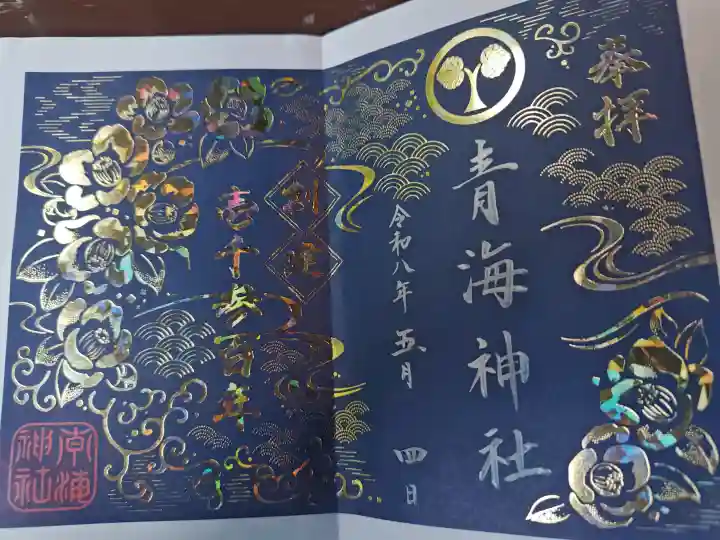 奉拝
青海神社
令和八年五月 四日
創建
壱千参百年
青海神社